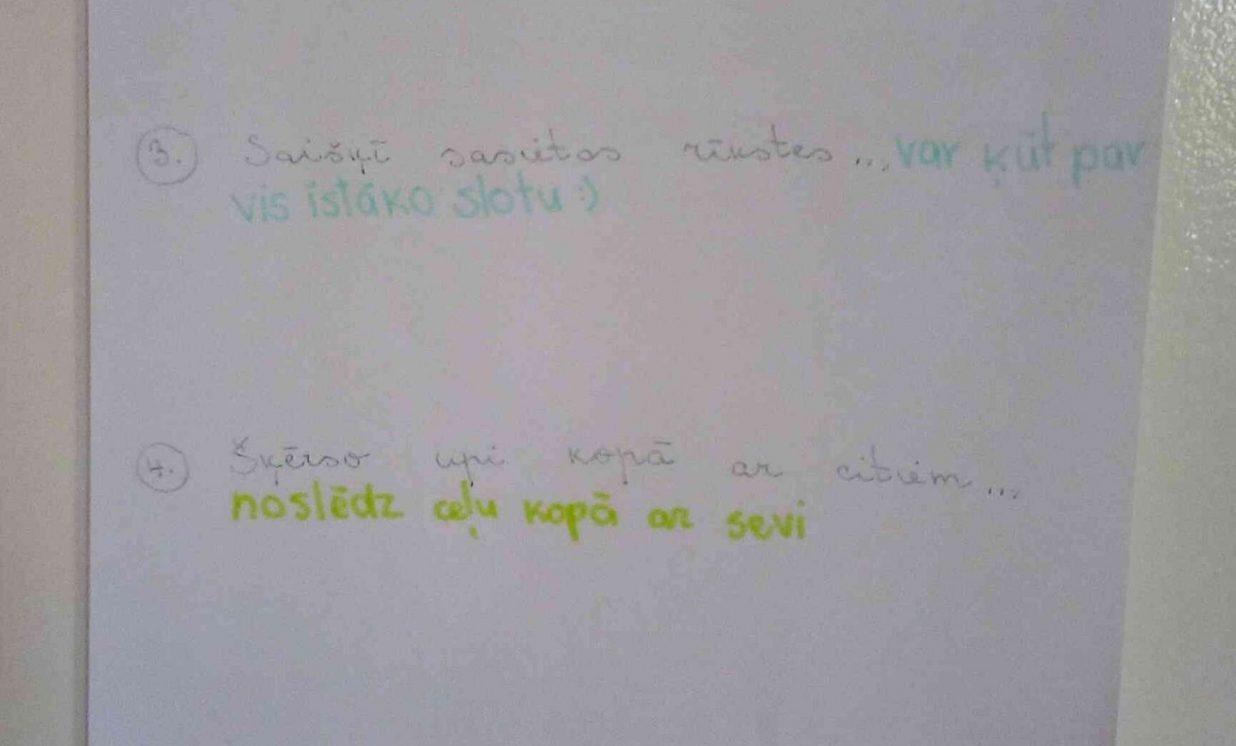 3. Saišķī sasietas rīkstes... var kļūt par
vis īstāko slotu :)
4. Šķērso upi kopā ar citiem...
noslēdz ceļu kopā ar sevi